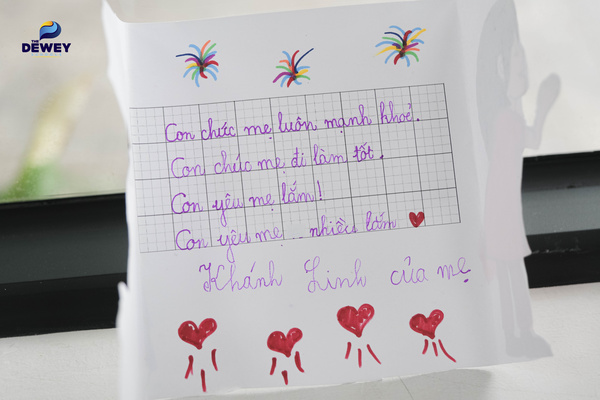 THE
DEWEY
Con chức mẹ luôn mạnh khoẻ.
Con chức mẹ đi làm tốt.
Con yêu mẹ lắm!
Con yêu mẹ nhiều lắm
Khánh Linh của mẹ